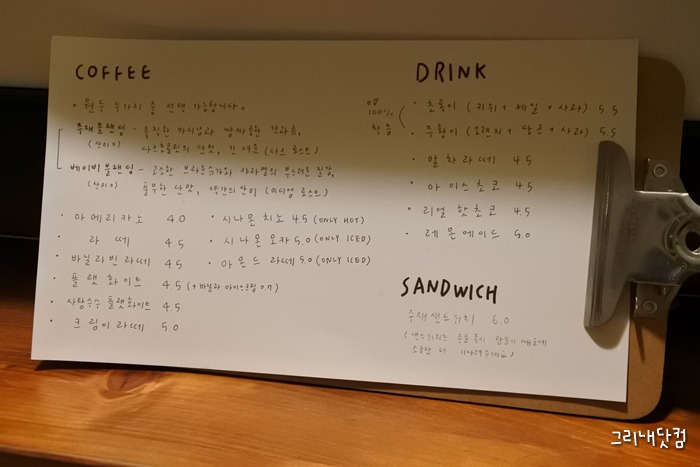 COFFEE
* 원두 두가지 중 선택 가능합니다.
두재 블랜딩 - 묵직한 바디감과 쌉싸름한 견과류,
(산미 X) 다크초콜릿의 산뜻, 긴 여운 (다크 로스트)
베이비 블랜딩 - 고소한 브라운슈가와 카라멜의 부드러운 질감,
(산미 O) 풍부한 단맛, 약간의 산미 (미디엄 로스트)
· 아메리카노 4.0
· 라떼 4.5
· 바닐라빈 라떼 4.5
· 플랫화이트 4.5 (+ 바닐라 아이스크림 0.7)
· 사탕수수 플랫화이트 4.5
· 크림이라떼 5.0
· 시나몬 치노 4.5 (ONLY HOT)
· 시나몬 모카 5.0 (ONLY ICED)
· 아몬드 라떼 5.0 (ONLY ICED)
DRINK
100%
착즙
· 초록이 (키위 + 케일 + 사과) 5.5
· 주황이 (오렌지 + 당근 + 사과) 5.5
· 말차라떼 4.5
· 아이스초코 4.5
· 리얼 핫초코 4.5
· 레몬에이드 5.0
SANDWICH
두재샌드위치 6.0
(샌드위치는 주문 즉시 만들기 때문에
조금만 더 기다려주세요)
그리내닷컴